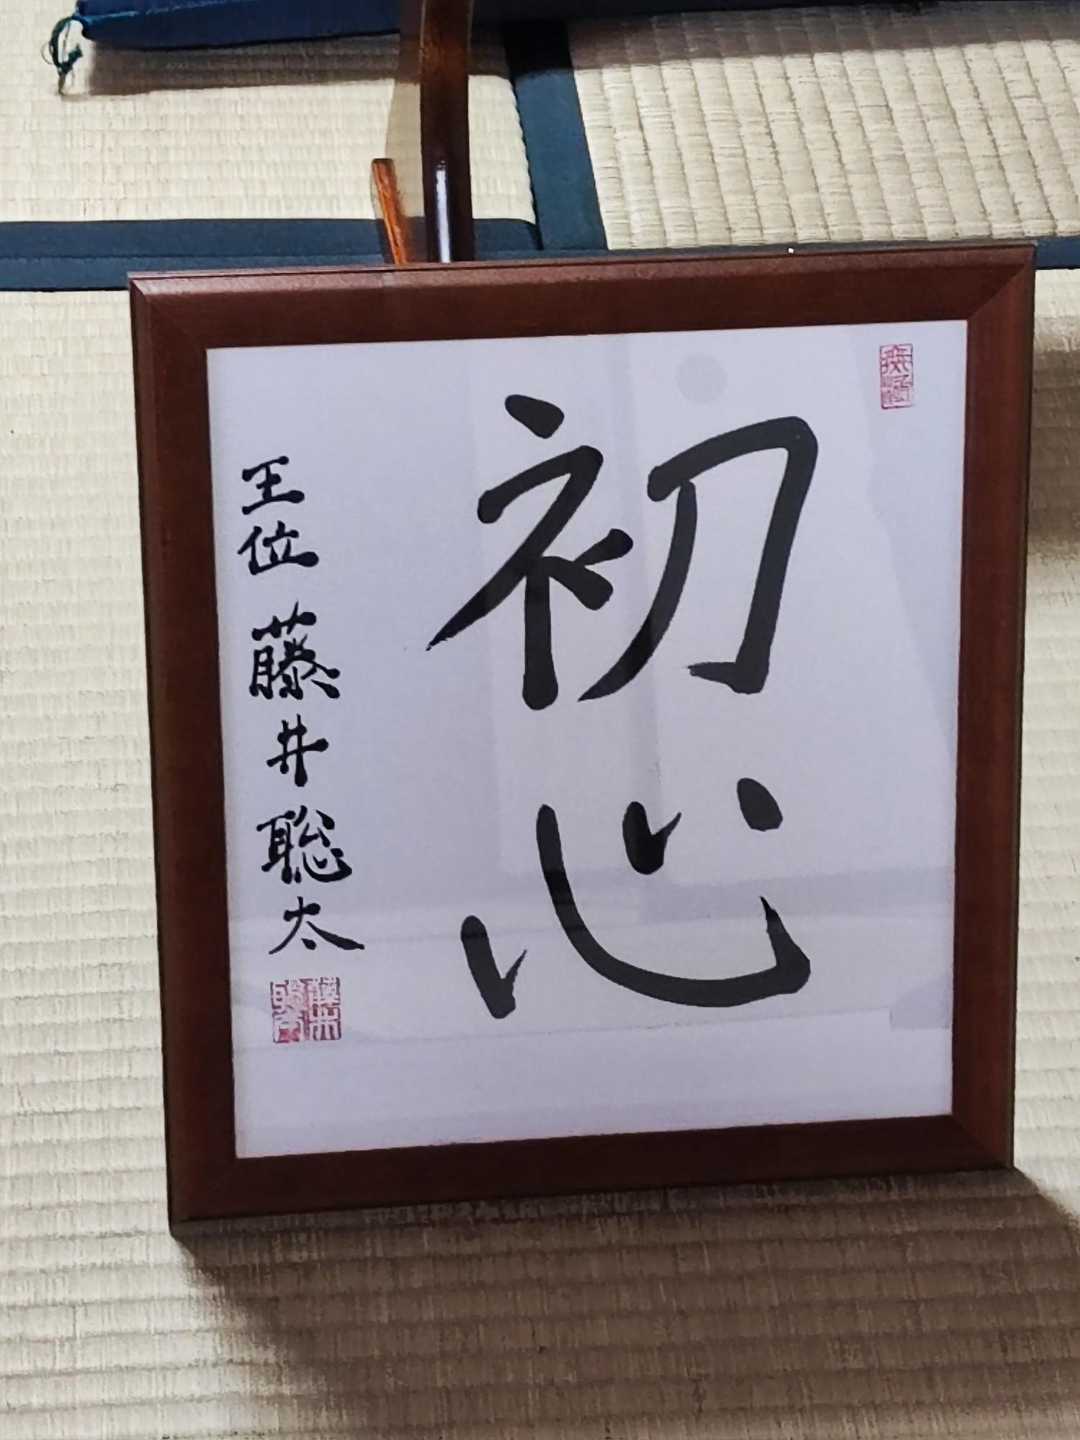 初心
王位 藤井聡太
藤井
聡太